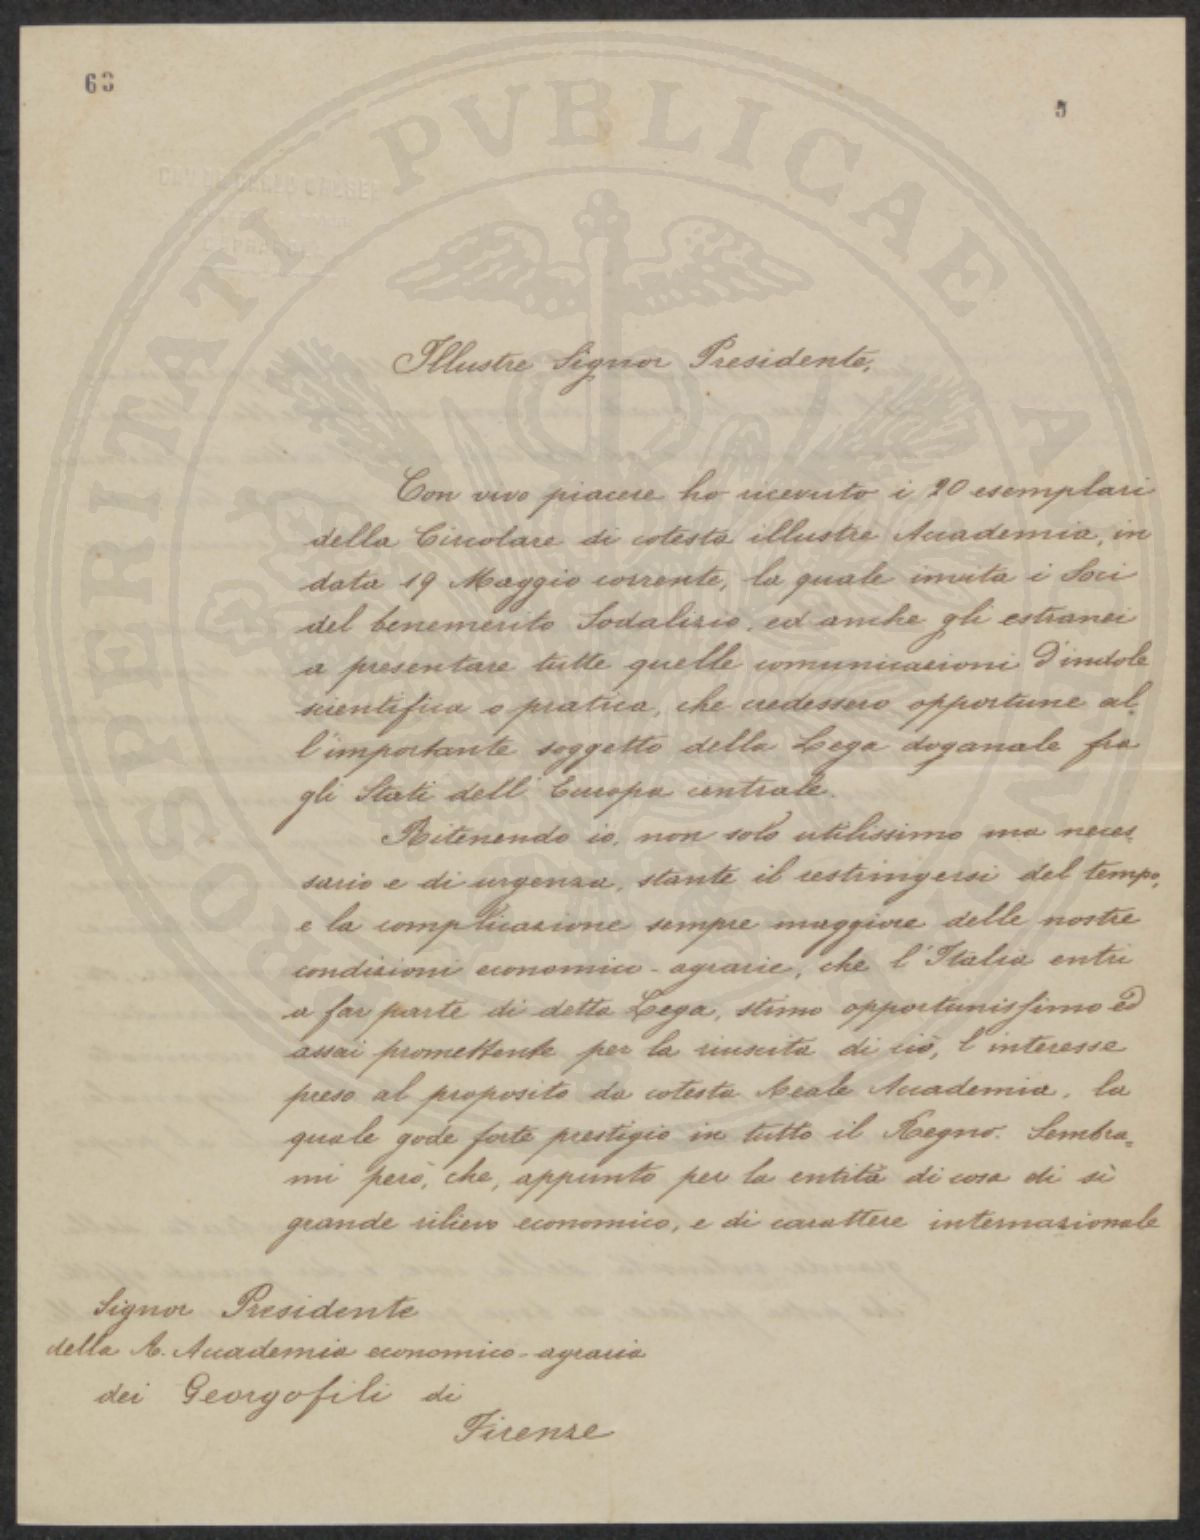 63
5
PROSPERITATI PVBLICAE AVGENDAE
Illustre Signor Presidente,
Con vivo piacere ho ricevuto i 20 esemplari
della Circolare di cotesta illustre Accademia, in
data 19 Maggio corrente, la quale invita i Soci
del benemerito Sodalizio, ed anche gli estranei
a presentare tutte quelle comunicazioni d'indole
scientifica o pratica, che credessero opportune al-
l'importante soggetto della Lega doganale fra
gli Stati dell'Europa centrale.
Ritenendo io, non solo utilissimo ma neces-
sario e di urgenza, stante il restringersi del tempo,
e la complicazione sempre maggiore delle nostre
condizioni economico-agrarie, che l'Italia entri
a far parte di detta Lega, stimo opportunissimo ed
assai promettente per la riuscita di ciò, l'interesse
preso al proposito da cotesta Reale Accademia, la
quale gode forte prestigio in tutto il Regno. Sembra-
mi però, che, appunto per la entità di cosa di sì
grande rilievo economico, e di carattere internazionale
Signor Presidente
della R. Accademia economico-agraria
dei Georgofili di
Firenze